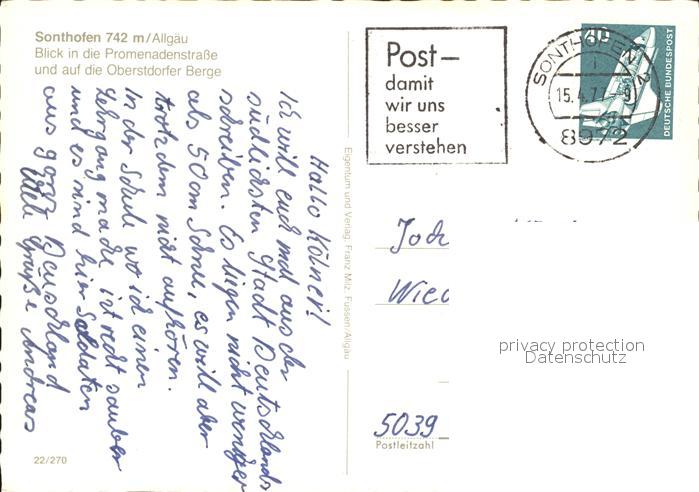 Sonthofen 742 m/Allgäu
Blick in die Promenadenstraße
und auf die Oberstdorfer Berge
Hallo Kölner!
Ich will euch mal aus der
südlichsten Stadt Deutschlands
schreiben. Es liegen nicht weniger
als 50 cm Schnee, es will aber
trotzdem nicht aufhören.
In der Schule wo ich einen
Lehrgang mache ist recht sauber
und es sind hier Soldaten
aus ganz Deuschland
Viele Grüße Andreas
22/270
Eigentum und Verlag: Franz Milz, Füssen/Allgäu
Post–
damit
wir uns
besser
verstehen
SONTHOFEN 2
15.4.77-9
8972
60
DEUTSCHE BUNDESPOST
Joch
Wied
5039
Postleitzahl
privacy protection
Datenschutz